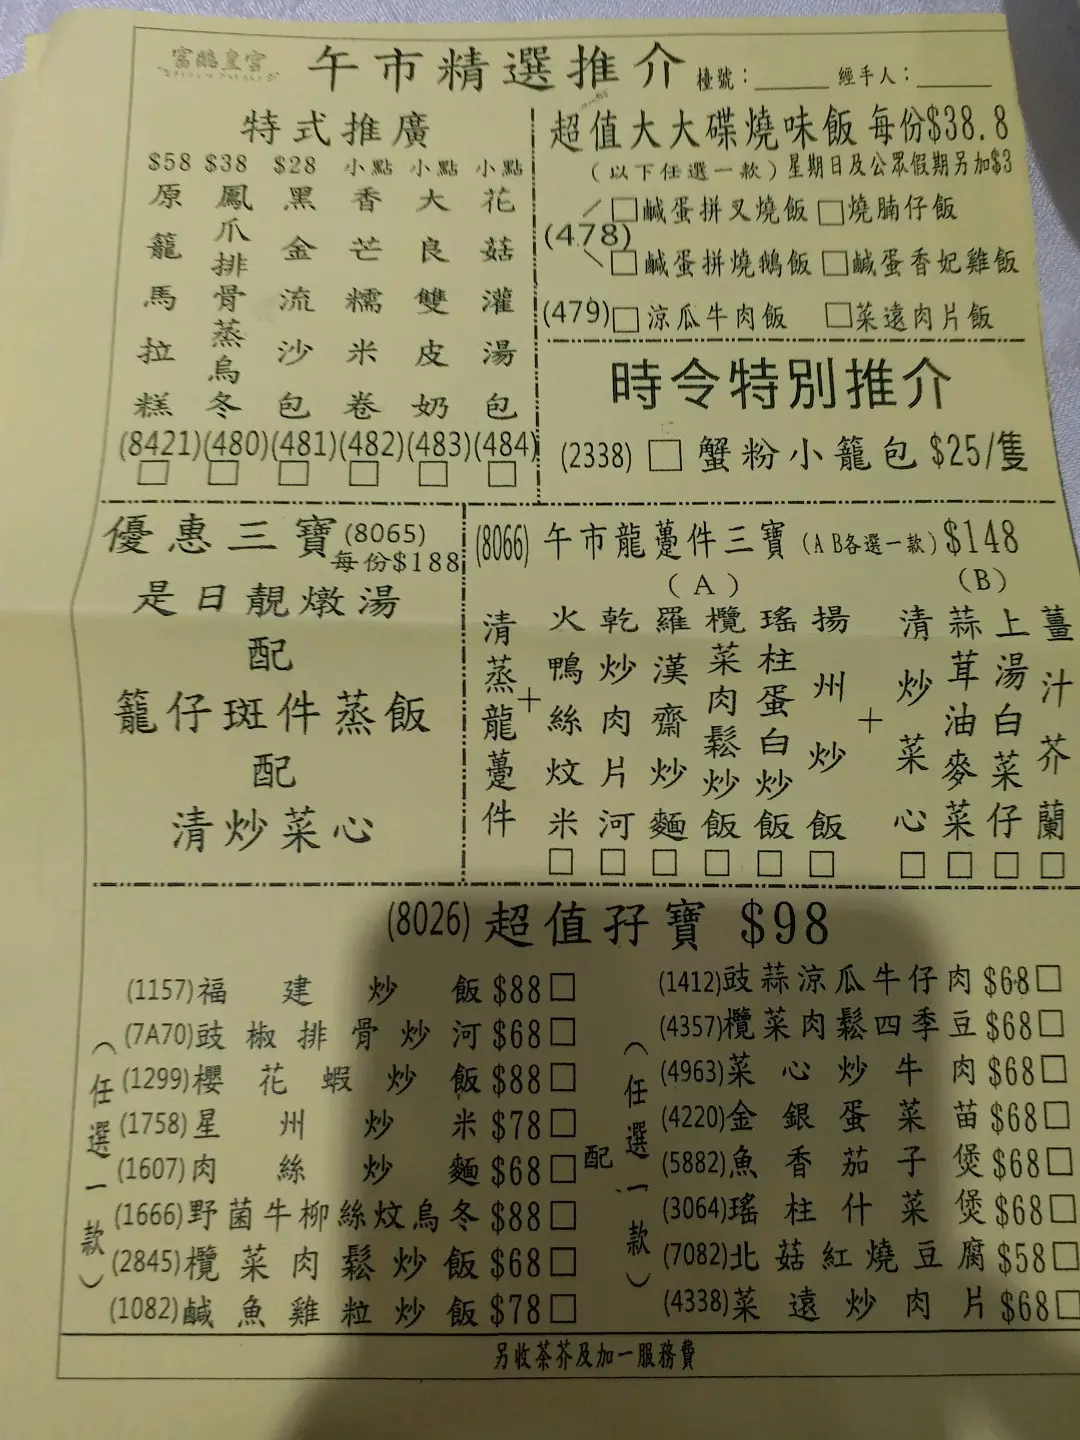 富臨皇宮
午市精選推介 檯號：______ 經手人：______
特式推廣
$58 $38 $28 小點 小點 小點
原籠馬拉糕
鳳爪排骨蒸烏冬
黑金流沙包
香芒糯米卷
大良雙皮奶
花菇灌湯包
(8421)(480)(481)(482)(483)(484)
□ □ □ □ □ □
超值大大碟燒味飯 每份$38.8
（以下任選一款）星期日及公眾假期另加$3
(478)
□鹹蛋拼叉燒飯 □燒腩仔飯
□鹹蛋拼燒鵝飯 □鹹蛋香妃雞飯
(479)□涼瓜牛肉飯 □菜遠肉片飯
時令特別推介
(2338) □ 蟹粉小籠包 $25/隻
優惠三寶(8065)
每份$188
是日靚燉湯
配
籠仔斑件蒸飯
配
清炒菜心
(8066) 午市龍躉件三寶（AB各選一款）$148
（A） （B）
清蒸龍躉件
+
火鴨絲炆米
乾炒肉片河
羅漢齋炒麵
欖菜肉鬆炒飯
瑤柱蛋白炒飯
揚州炒飯
+
清炒菜心
蒜茸油麥菜
上湯白菜仔
薑汁芥蘭
□ □ □ □ □ □ □ □ □ □
(8026) 超值孖寶 $98
（任選一款）
(1157)福建炒飯$88□
(7A70)豉椒排骨炒河$68□
(1299)櫻花蝦炒飯$88□
(1758)星州炒米$78□
(1607)肉絲炒麵$68□
(1666)野菌牛柳絲炆烏冬$88□
(2845)欖菜肉鬆炒飯$68□
(1082)鹹魚雞粒炒飯$78□
配
（任選一款）
(1412)豉蒜涼瓜牛仔肉$68□
(4357)欖菜肉鬆四季豆$68□
(4963)菜心炒牛肉$68□
(4220)金銀蛋菜苗$68□
(5882)魚香茄子煲$68□
(3064)瑤柱什菜煲$68□
(7082)北菇紅燒豆腐$58□
(4338)菜遠炒肉片$68□
另收茶芥及加一服務費